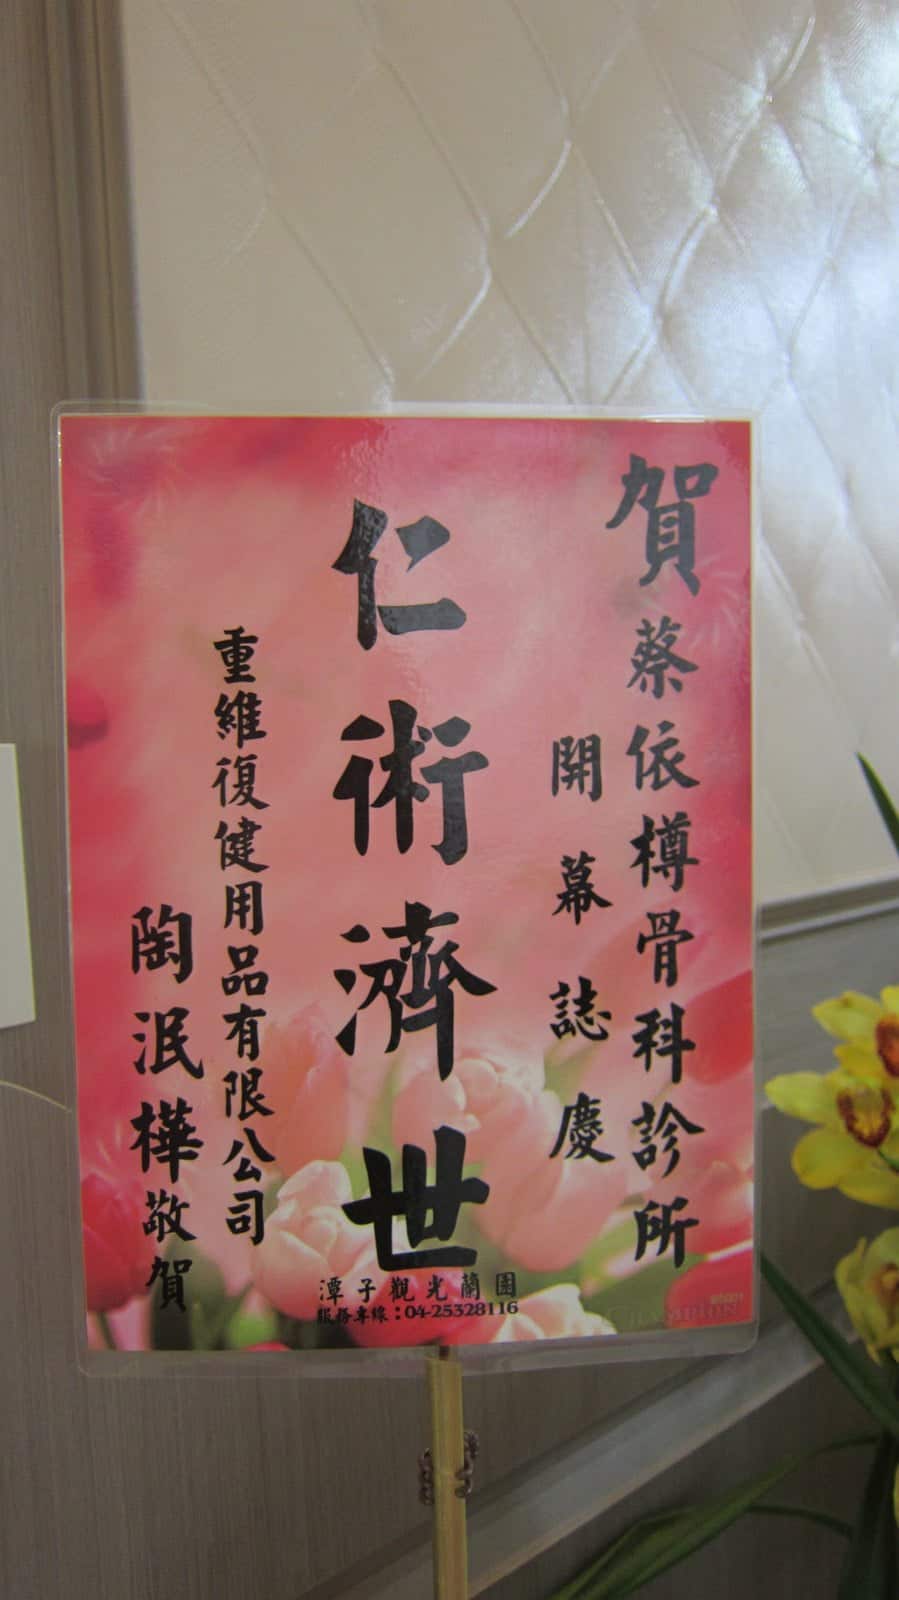 賀蔡依樽骨科診所
開幕誌慶
仁術濟世
重維復健用品有限公司
陶泯樺敬賀
潭子觀光蘭園
服務專線：04-25328116
CHAMPION